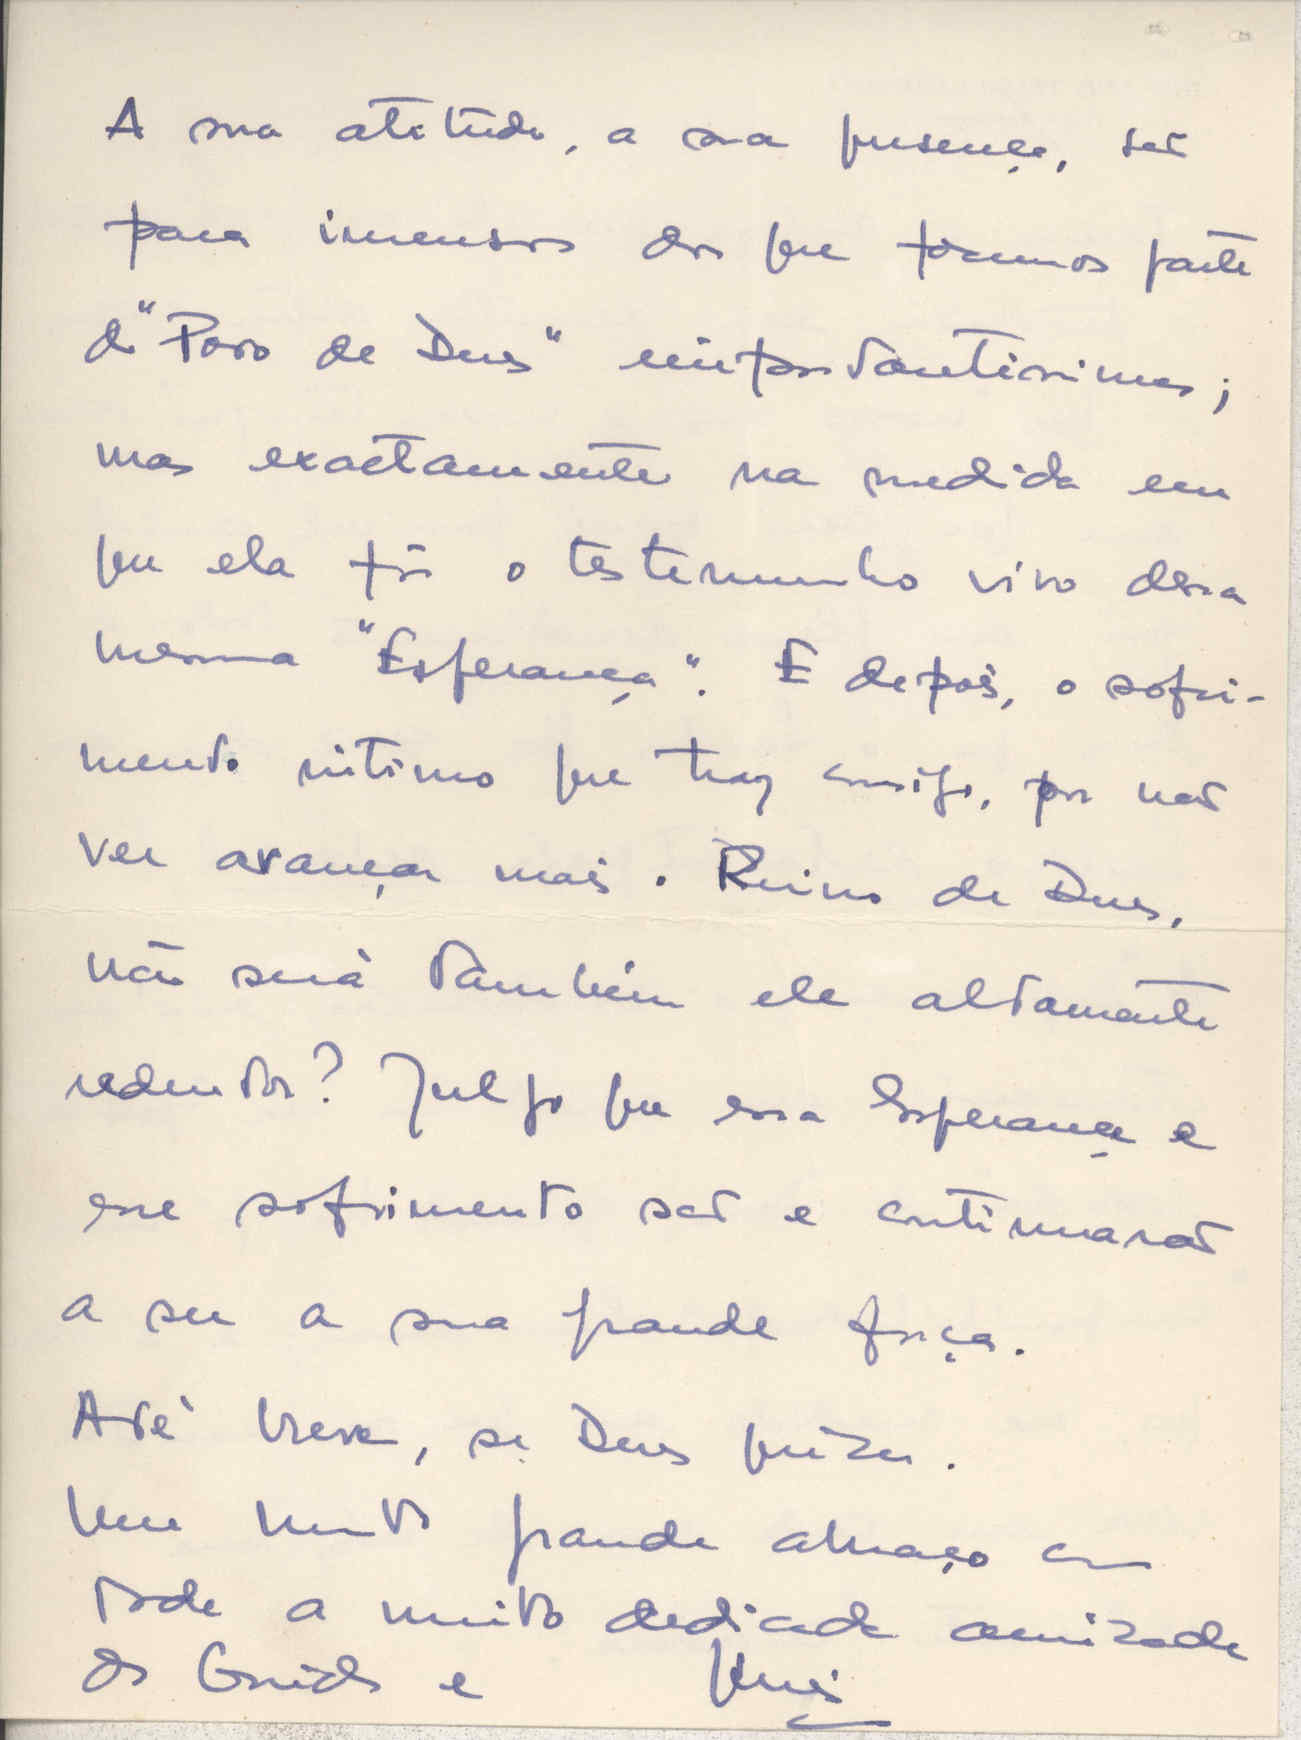 A sua atitude, a sua presença, são
para imensos dos que fazemos parte
do "Povo de Deus" importantíssimas;
mas exactamente na medida em
que ela fôr o testemunho vivo dessa
mesma "Esperança". E depois, o sofri-
mento íntimo que traz consigo, por não
ver avançar mais o Reino de Deus,
não será também ele altamente
redentor? Julgo que essa Esperança e
esse sofrimento são e continuarão
a ser a sua grande força.
Até breve, se Deus quizer.
Um muito grande abraço com
toda a muito dedicada amizade
do Guido e